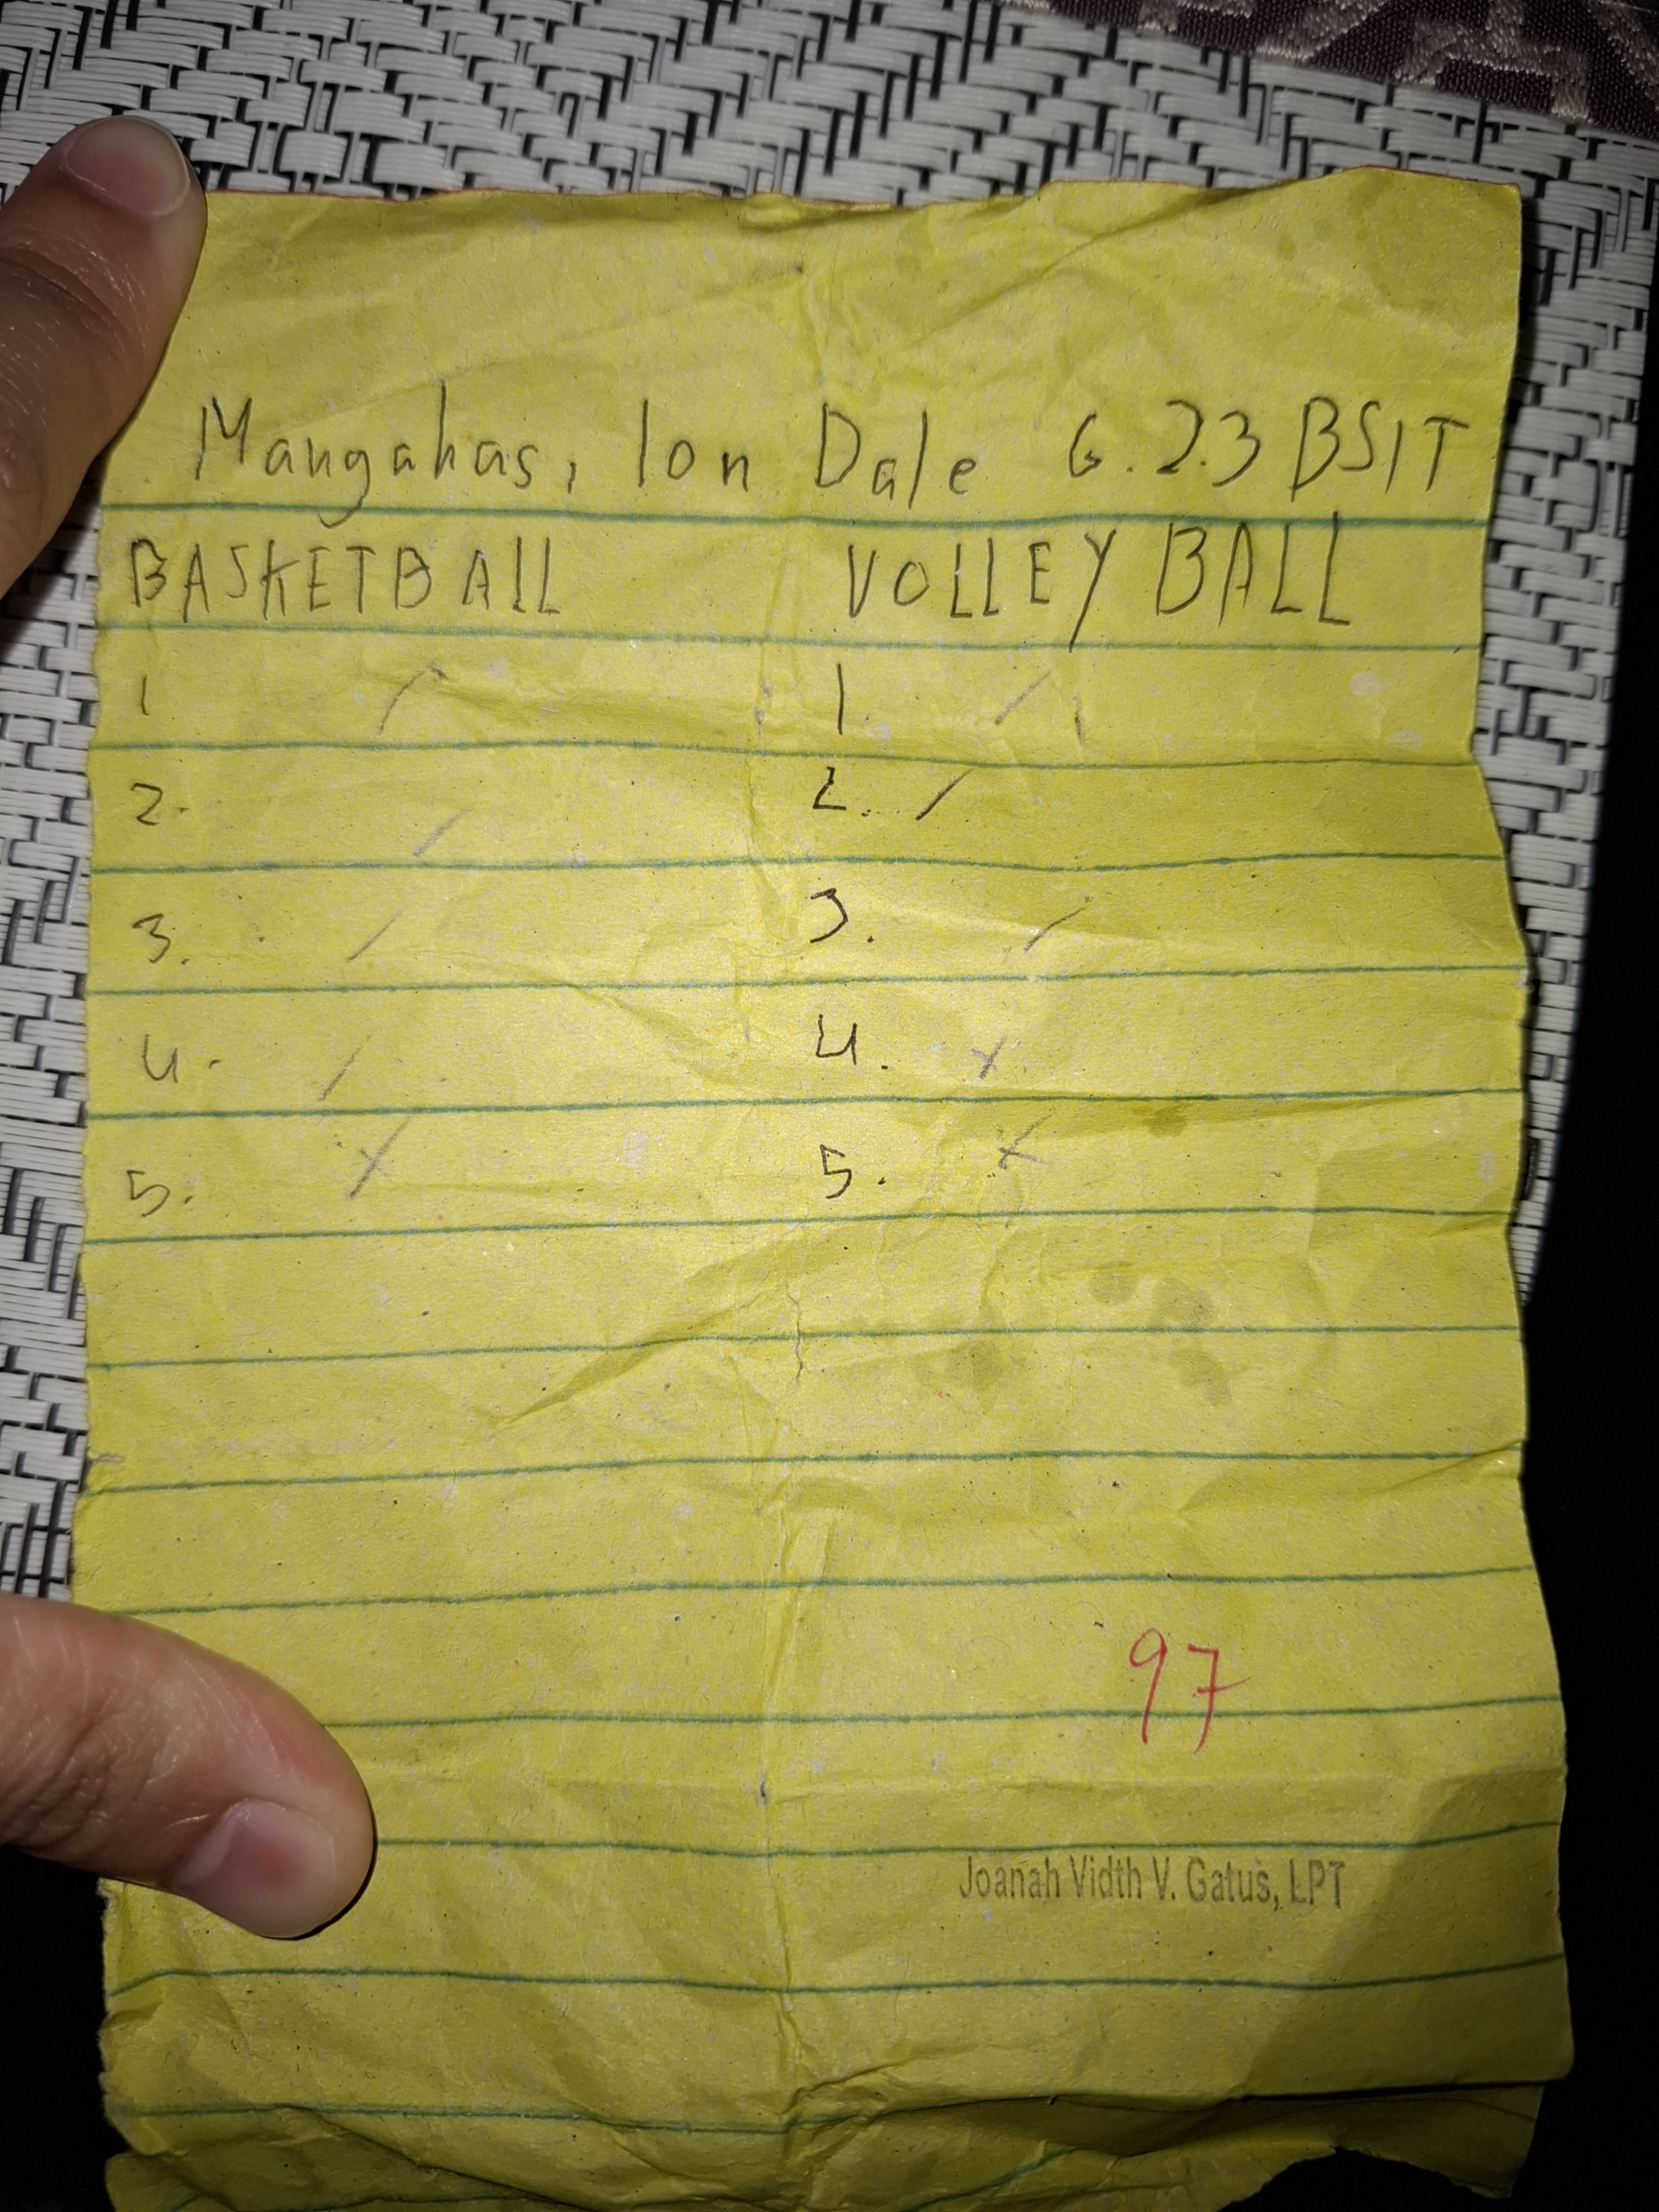 Mangahas, Ion Dale G. 2.3 BSIT
BASKETBALL VOLLEY BALL
1 / 1. /
2. / 2. /
3. / 3. /
4. / 4. x
5. x 5. x
97
Joanah Vidth V. Gatus, LPT